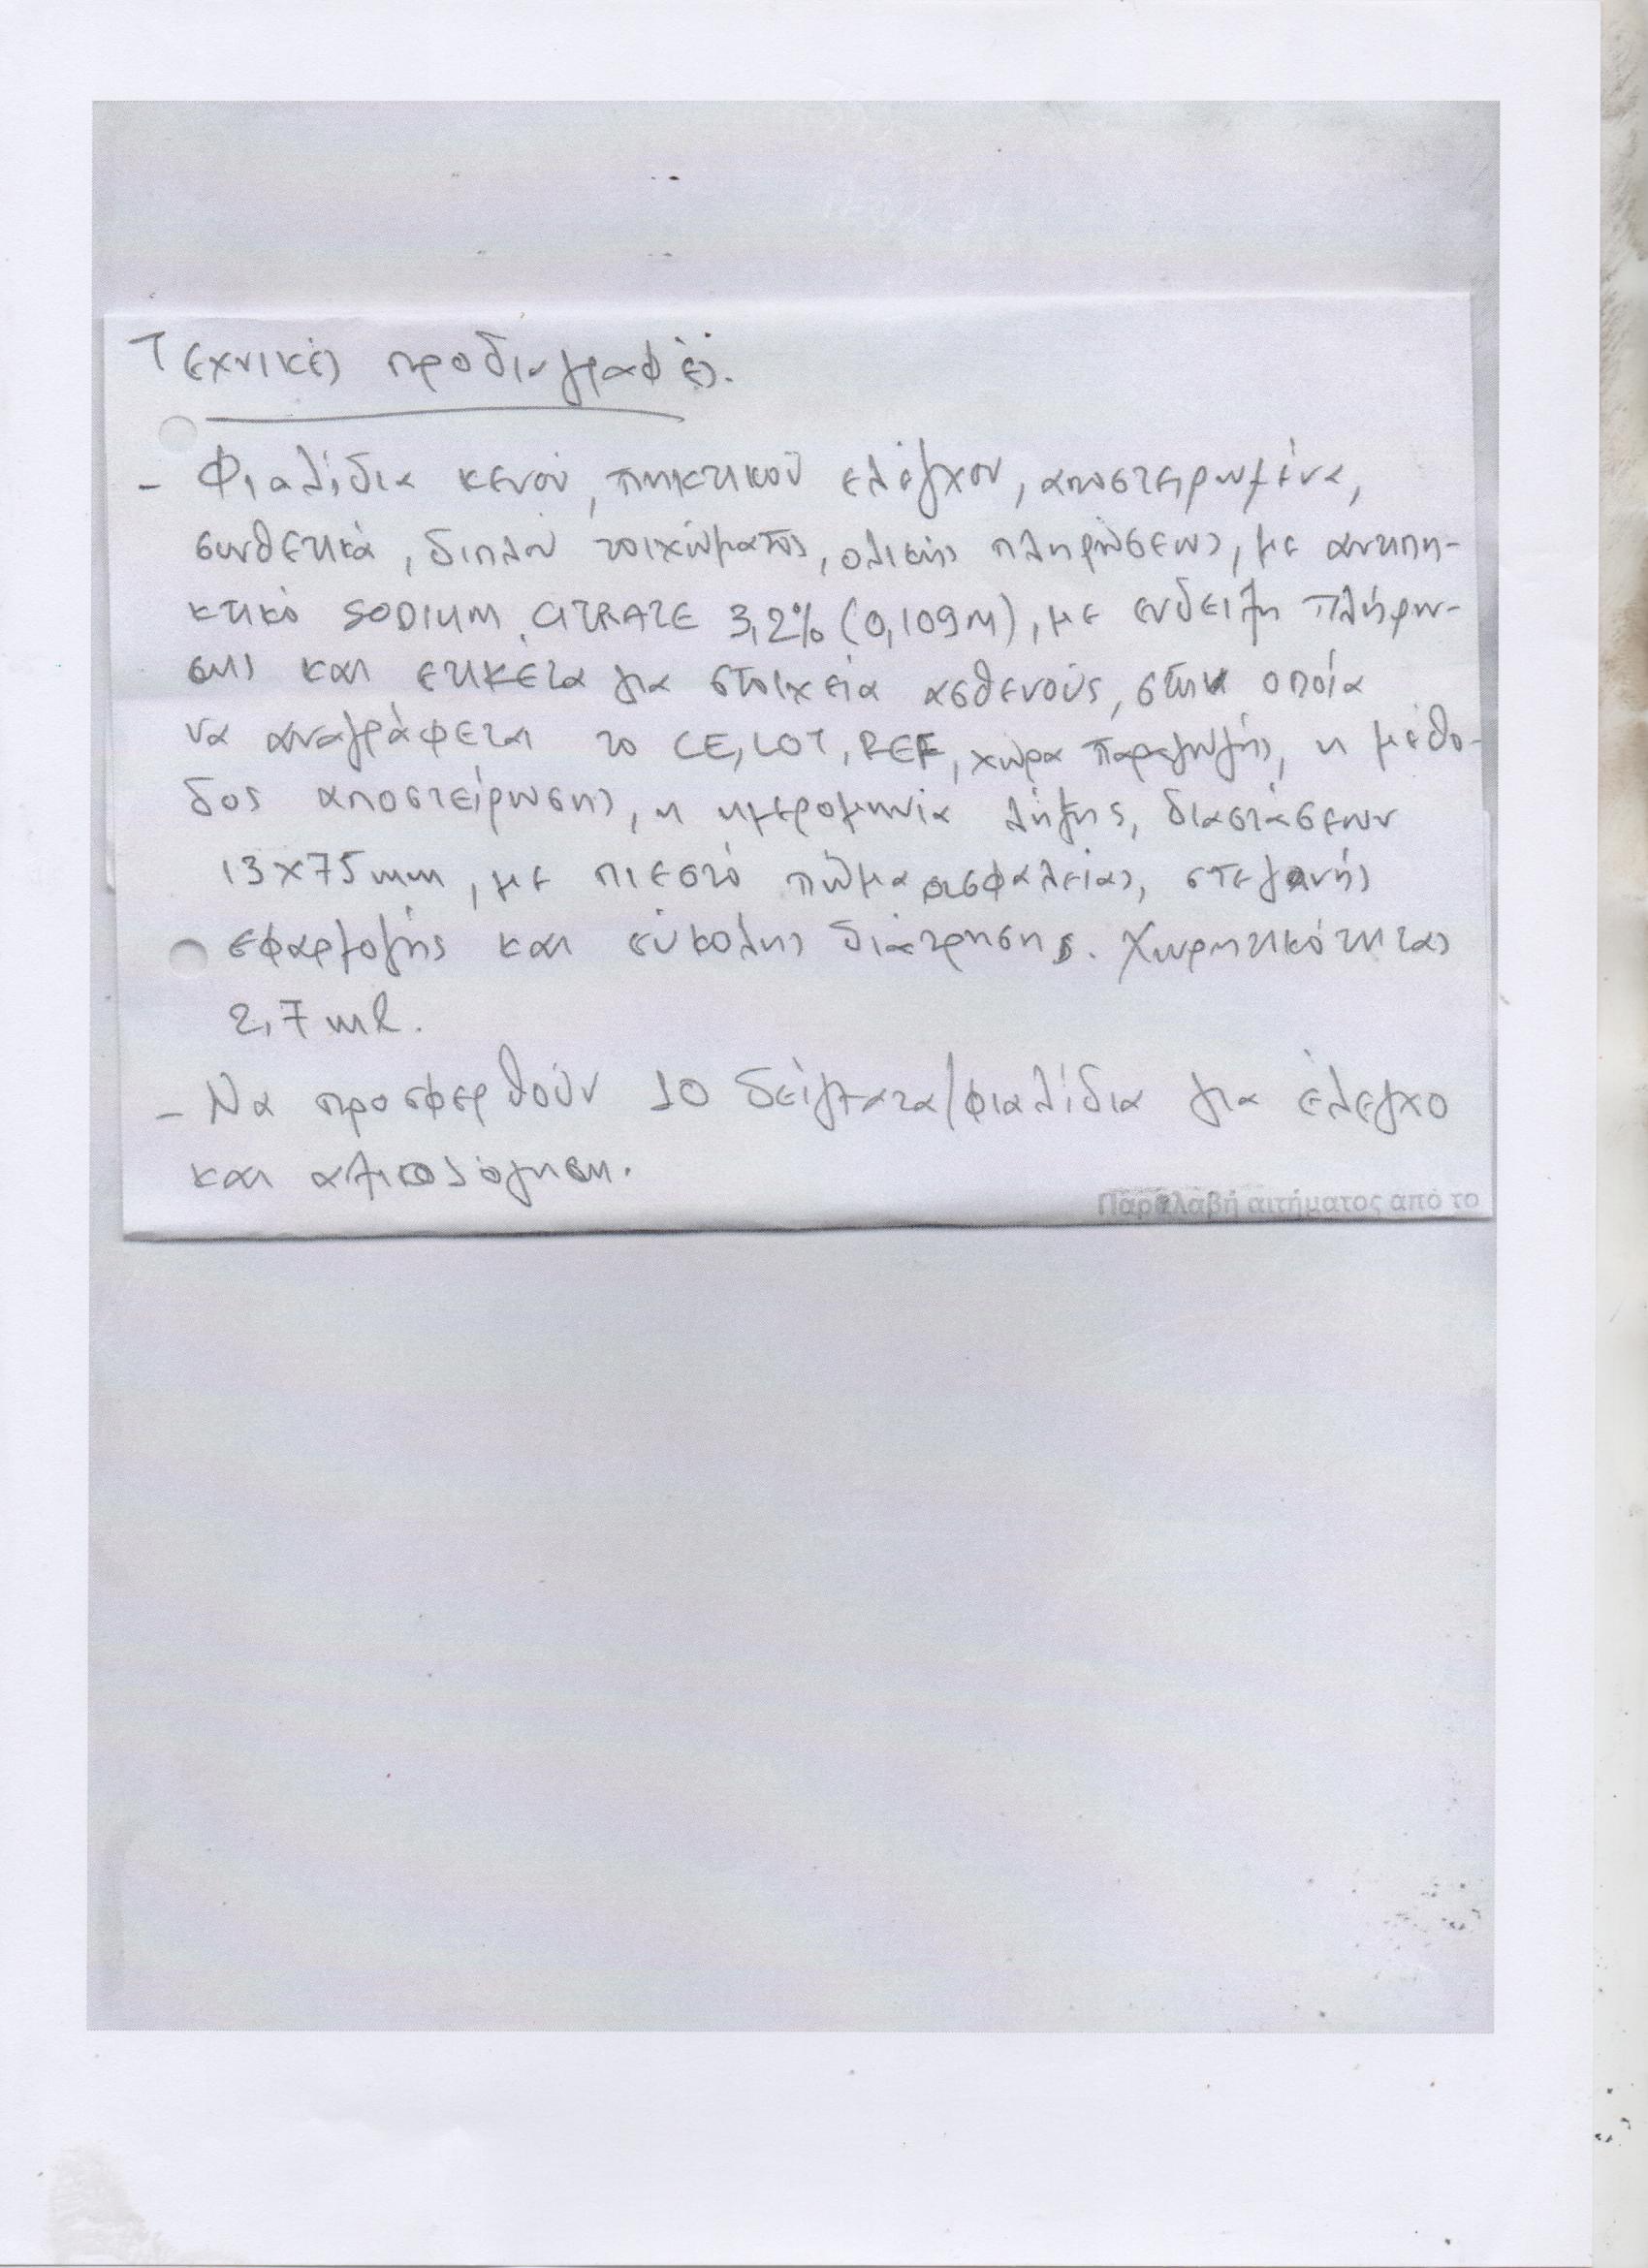 Τεχνικές προδιαγραφές.
- Φιαλίδια κενού, πηκτικού ελέγχου, αποστειρωμένα,
συνθετικά, διπλού τοιχώματος, ολικής πληρώσεως, με αντιπη-
κτικό SODIUM CITRATE 3,2% (0,109M), με ένδειξη πλήρω-
σης και ετικέτα για στοιχεία ασθενούς, στην οποία
να αναγράφεται το CE, LOT, REF, χώρα παραγωγής, η μέθο-
δος αποστείρωσης, η ημερομηνία λήξης, διαστάσεων
13x75mm, με πιεστό πώμα ασφαλείας, στεγανής
εφαρμογής και εύκολης διάτρησης. Χωρητικότητας
2,7 ml.
- Να προσφερθούν 10 δείγματα/φιαλίδια για έλεγχο
και αξιολόγηση.
Παραλαβή αιτήματος από το